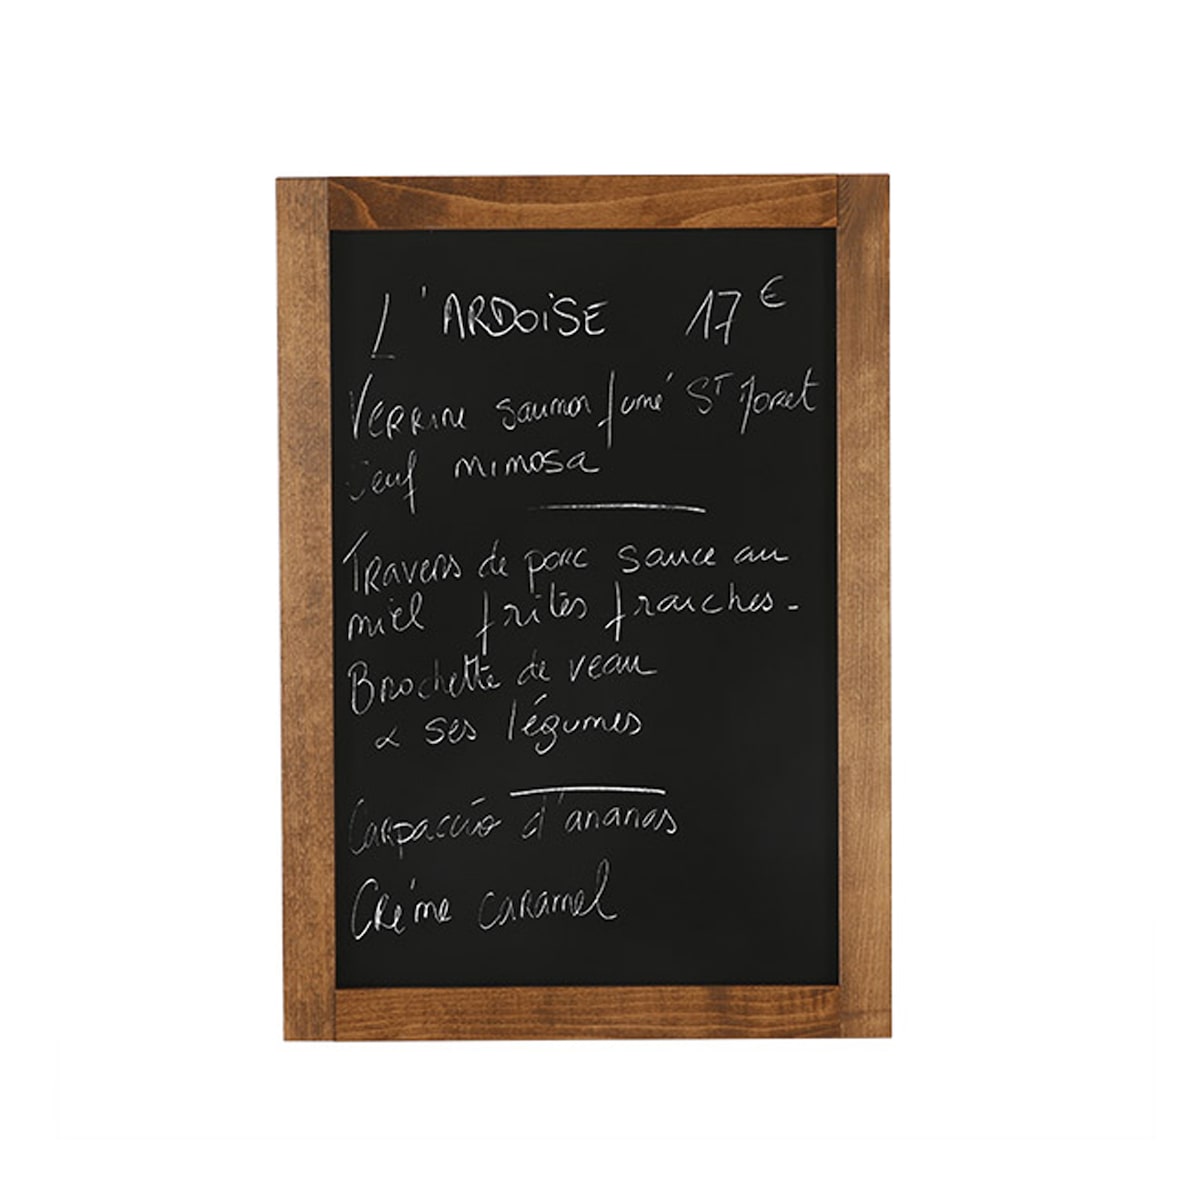 L'ARDOISE 17€
Verrine saumon fumé St Moret
oeuf mimosa
Travers de porc sauce au
miel frites fraiches-
Brochette de veau
& ses légumes
Carpaccio d'ananas
Crème caramel